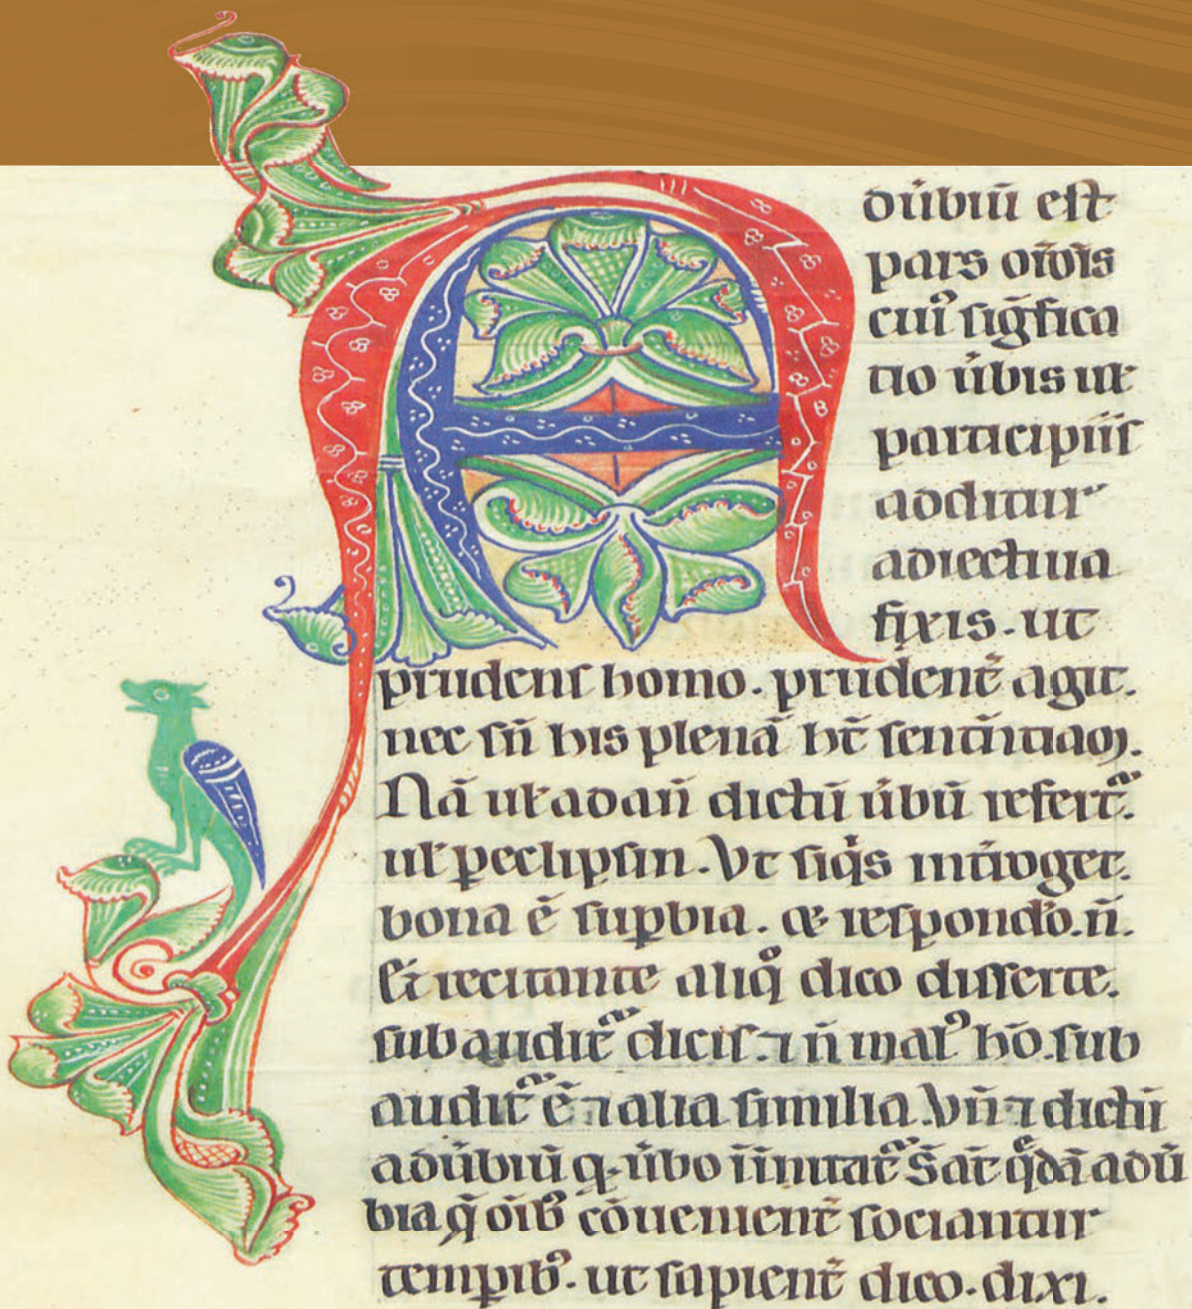 Aduƀiū eſt
par𝑠 or̄oı̄s
cuiꝰ ſigᷓfica
tio u̓bis ul̵
participiiſ
additur
adiectiua
fixis. ut
prudenſ homo. prudent̄ agit.
nec ſn̄ his plenā ht̄ ſentn̄tiam.
Nā ul̵ ad an̄ dictū u̓bū refertᷓ.
ul̵ ꝑ eclipſin. Vt ſiq̇s int̄roget.
bona ē ſuꝑbia. & reſpondō. n̄.
& recitante aliqͦ dico diſſerte.
ſubauditᷓ dicis. ⁊ n̄ malꝰ hō. ſub
auditᷓ ē. ⁊ alia ſimilia. Vn̄ ⁊ dictū
adu̓biū q. u̓bo īnitatᷓ S̄ at̄ q̄dā adu̓
bia q̄ oı̄bꝰ cōuenient̄ ſociantur
temꝑibꝰ. ut ſapient̄ dico. dixi.